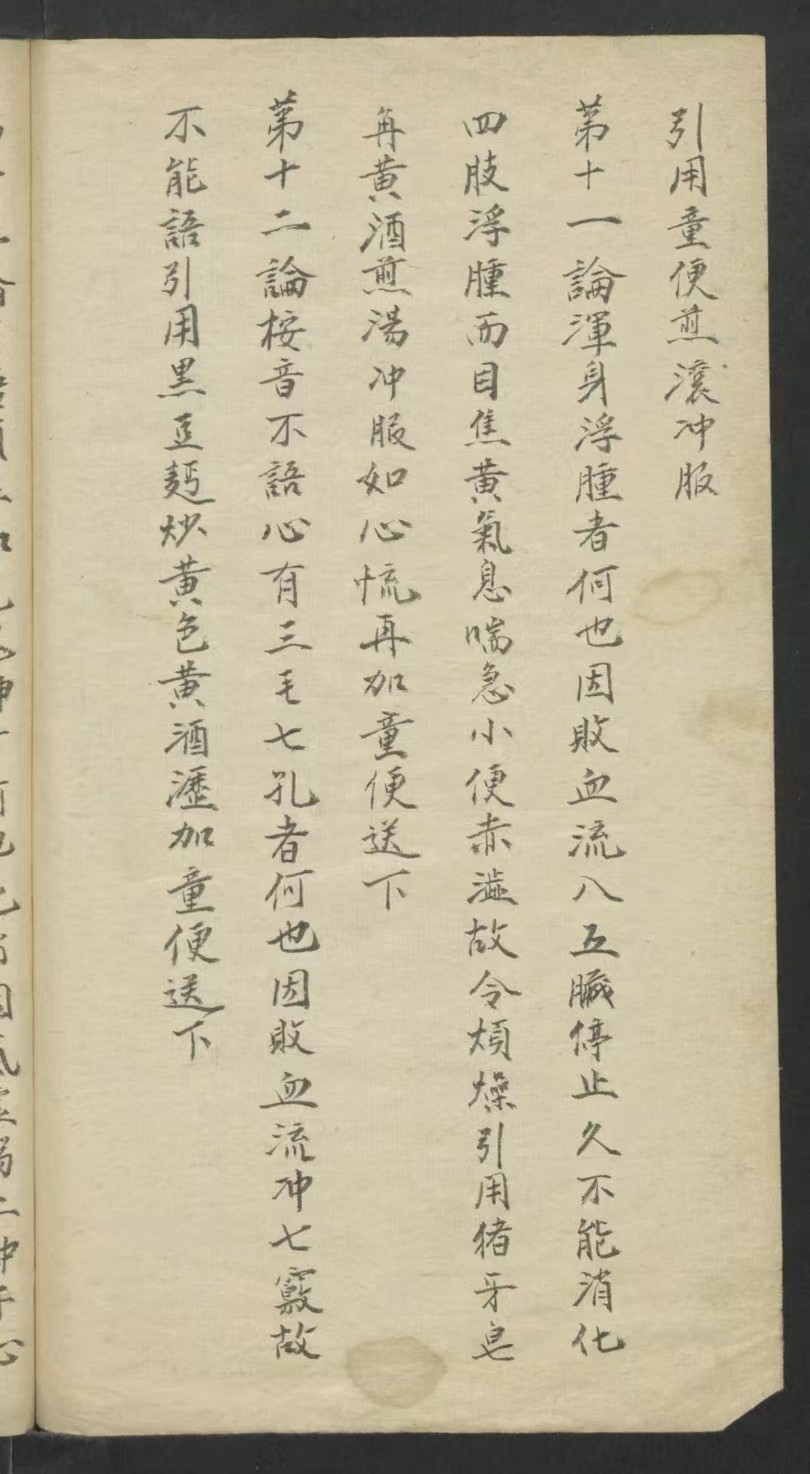 引用童便煎滾冲服
第十一論渾身浮腫者何也因敗血流八五臟停止久不能消化
四肢浮腫面目焦黄氣息喘急小便赤澁故令煩燥引用猪牙皂
再黄酒煎湯冲服如心慌再加童便送下
第十二論桉音不語心有三毛七孔者何也因敗血流冲七竅故
不能語引用黒豆麪炒黄色黄酒瀝加童便送下